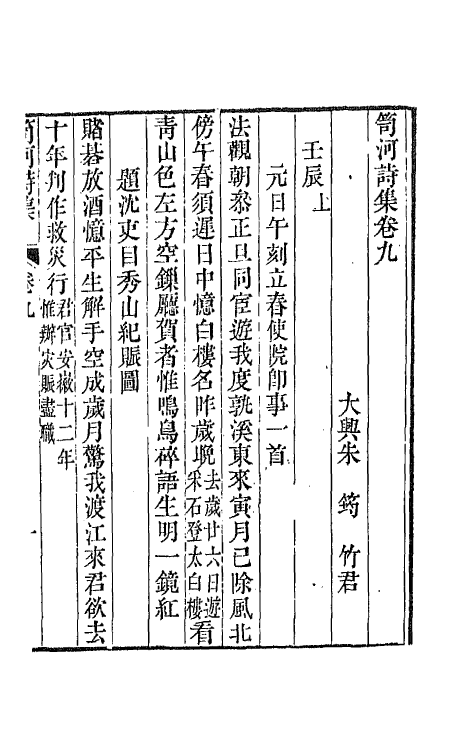 笥河詩集卷九
大興朱　筠　竹君
壬辰上
元日午刻立春使院卽事一首
法觀朝叅正旦同宦遊我度孰溪東來寅月已除風北
傍午春須遲日中憶白樓名昨歲晚去歲廿六日遊采石登太白樓看
靑山色左方空鎻廳賀者惟鳴鳥碎語生明一鏡紅
題沈吏目秀山紀賑圖
賭碁放酒憶平生解手空成歲月驚我渡江來君欲去
十年判作救災行君官安徽十二年惟辦灾賑盡職
笥河詩集　卷九　一